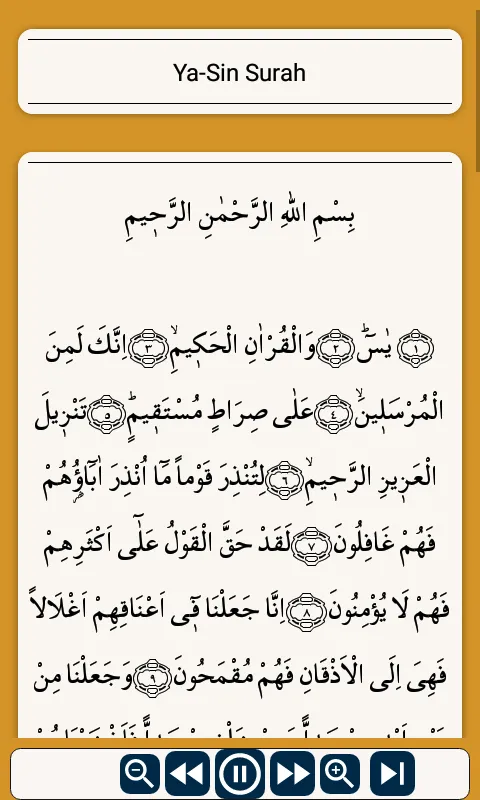 Ya-Sin Surah
بِسْمِ اللهِ الرَّحْمٰنِ الرَّح۪يمِ
﴿١﴾ يٰسٓۜ ﴿٢﴾ وَالْقُرْاٰنِ الْحَك۪يمِۙ ﴿٣﴾ اِنَّكَ لَمِنَ
الْمُرْسَل۪ينَۙ ﴿٤﴾ عَلٰى صِرَاطٍ مُسْتَق۪يمٍۜ ﴿٥﴾ تَنْز۪يلَ
الْعَز۪يزِ الرَّح۪يمِۙ ﴿٦﴾ لِتُنْذِرَ قَوْماً مَٓا اُنْذِرَ اٰبَٓاؤُ۬هُمْ
فَهُمْ غَافِلُونَ ﴿٧﴾ لَقَدْ حَقَّ الْقَوْلُ عَلٰٓى اَكْثَرِهِمْ
فَهُمْ لَا يُؤْمِنُونَ ﴿٨﴾ اِنَّا جَعَلْنَا ف۪ٓى اَعْنَاقِهِمْ اَغْلَالاً
فَهِىَ اِلَى الْاَذْقَانِ فَهُمْ مُقْمَحُونَ ﴿٩﴾ وَجَعَلْنَا مِنْ